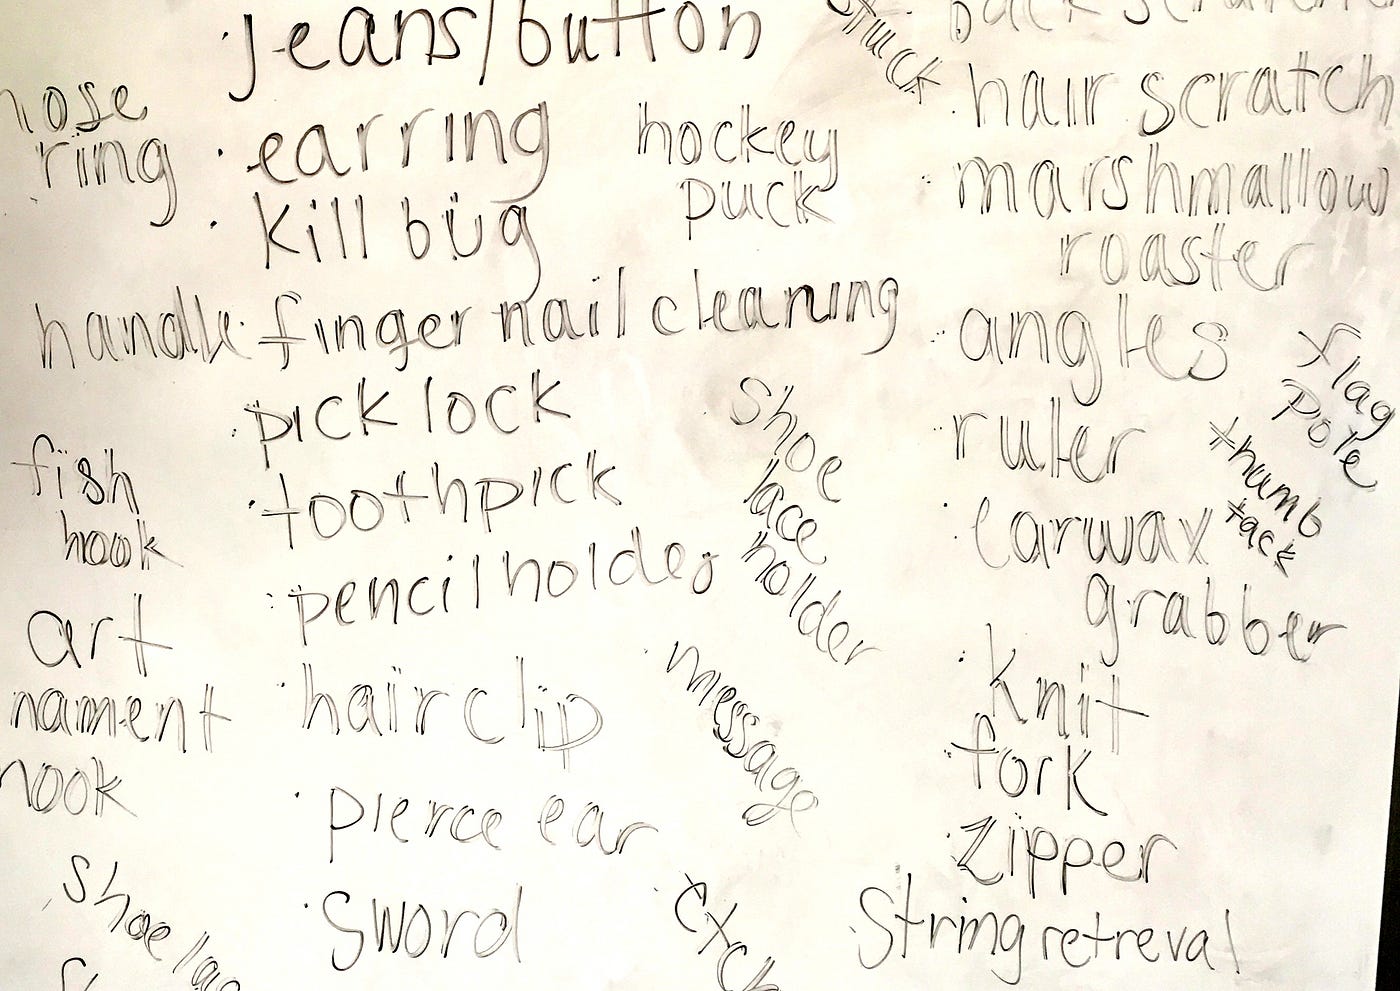 jeans/button
nose
ring
earring
kill bug
handle
finger nail cleaning
pick lock
fish
hook
toothpick
pencil holder
art
nament
hook
hair clip
pierce ear
sword
hockey
puck
shoe
lace
holder
message
hair scratch
marshmallow
roaster
angles
flag
pole
ruler
thumb
tack
earwax
grabber
knit
fork
zipper
String retreval